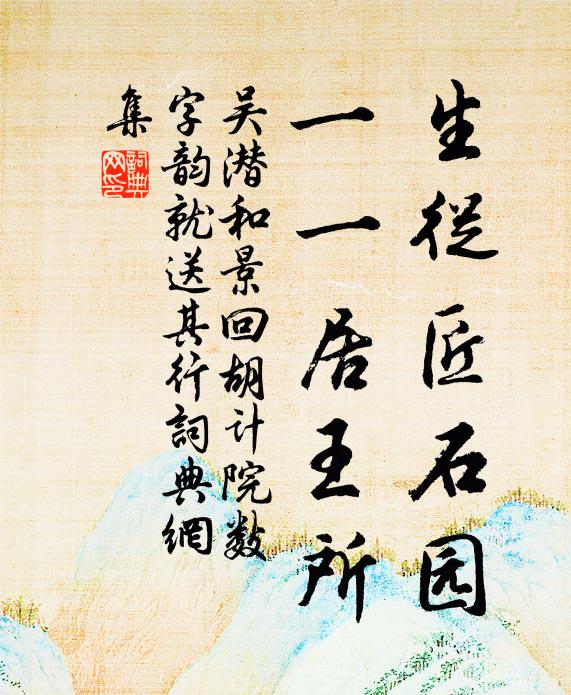 生從匠石园
一一居王所
吴潜和景回胡计院数
字韵就送其行詞典網
集
詞典網印